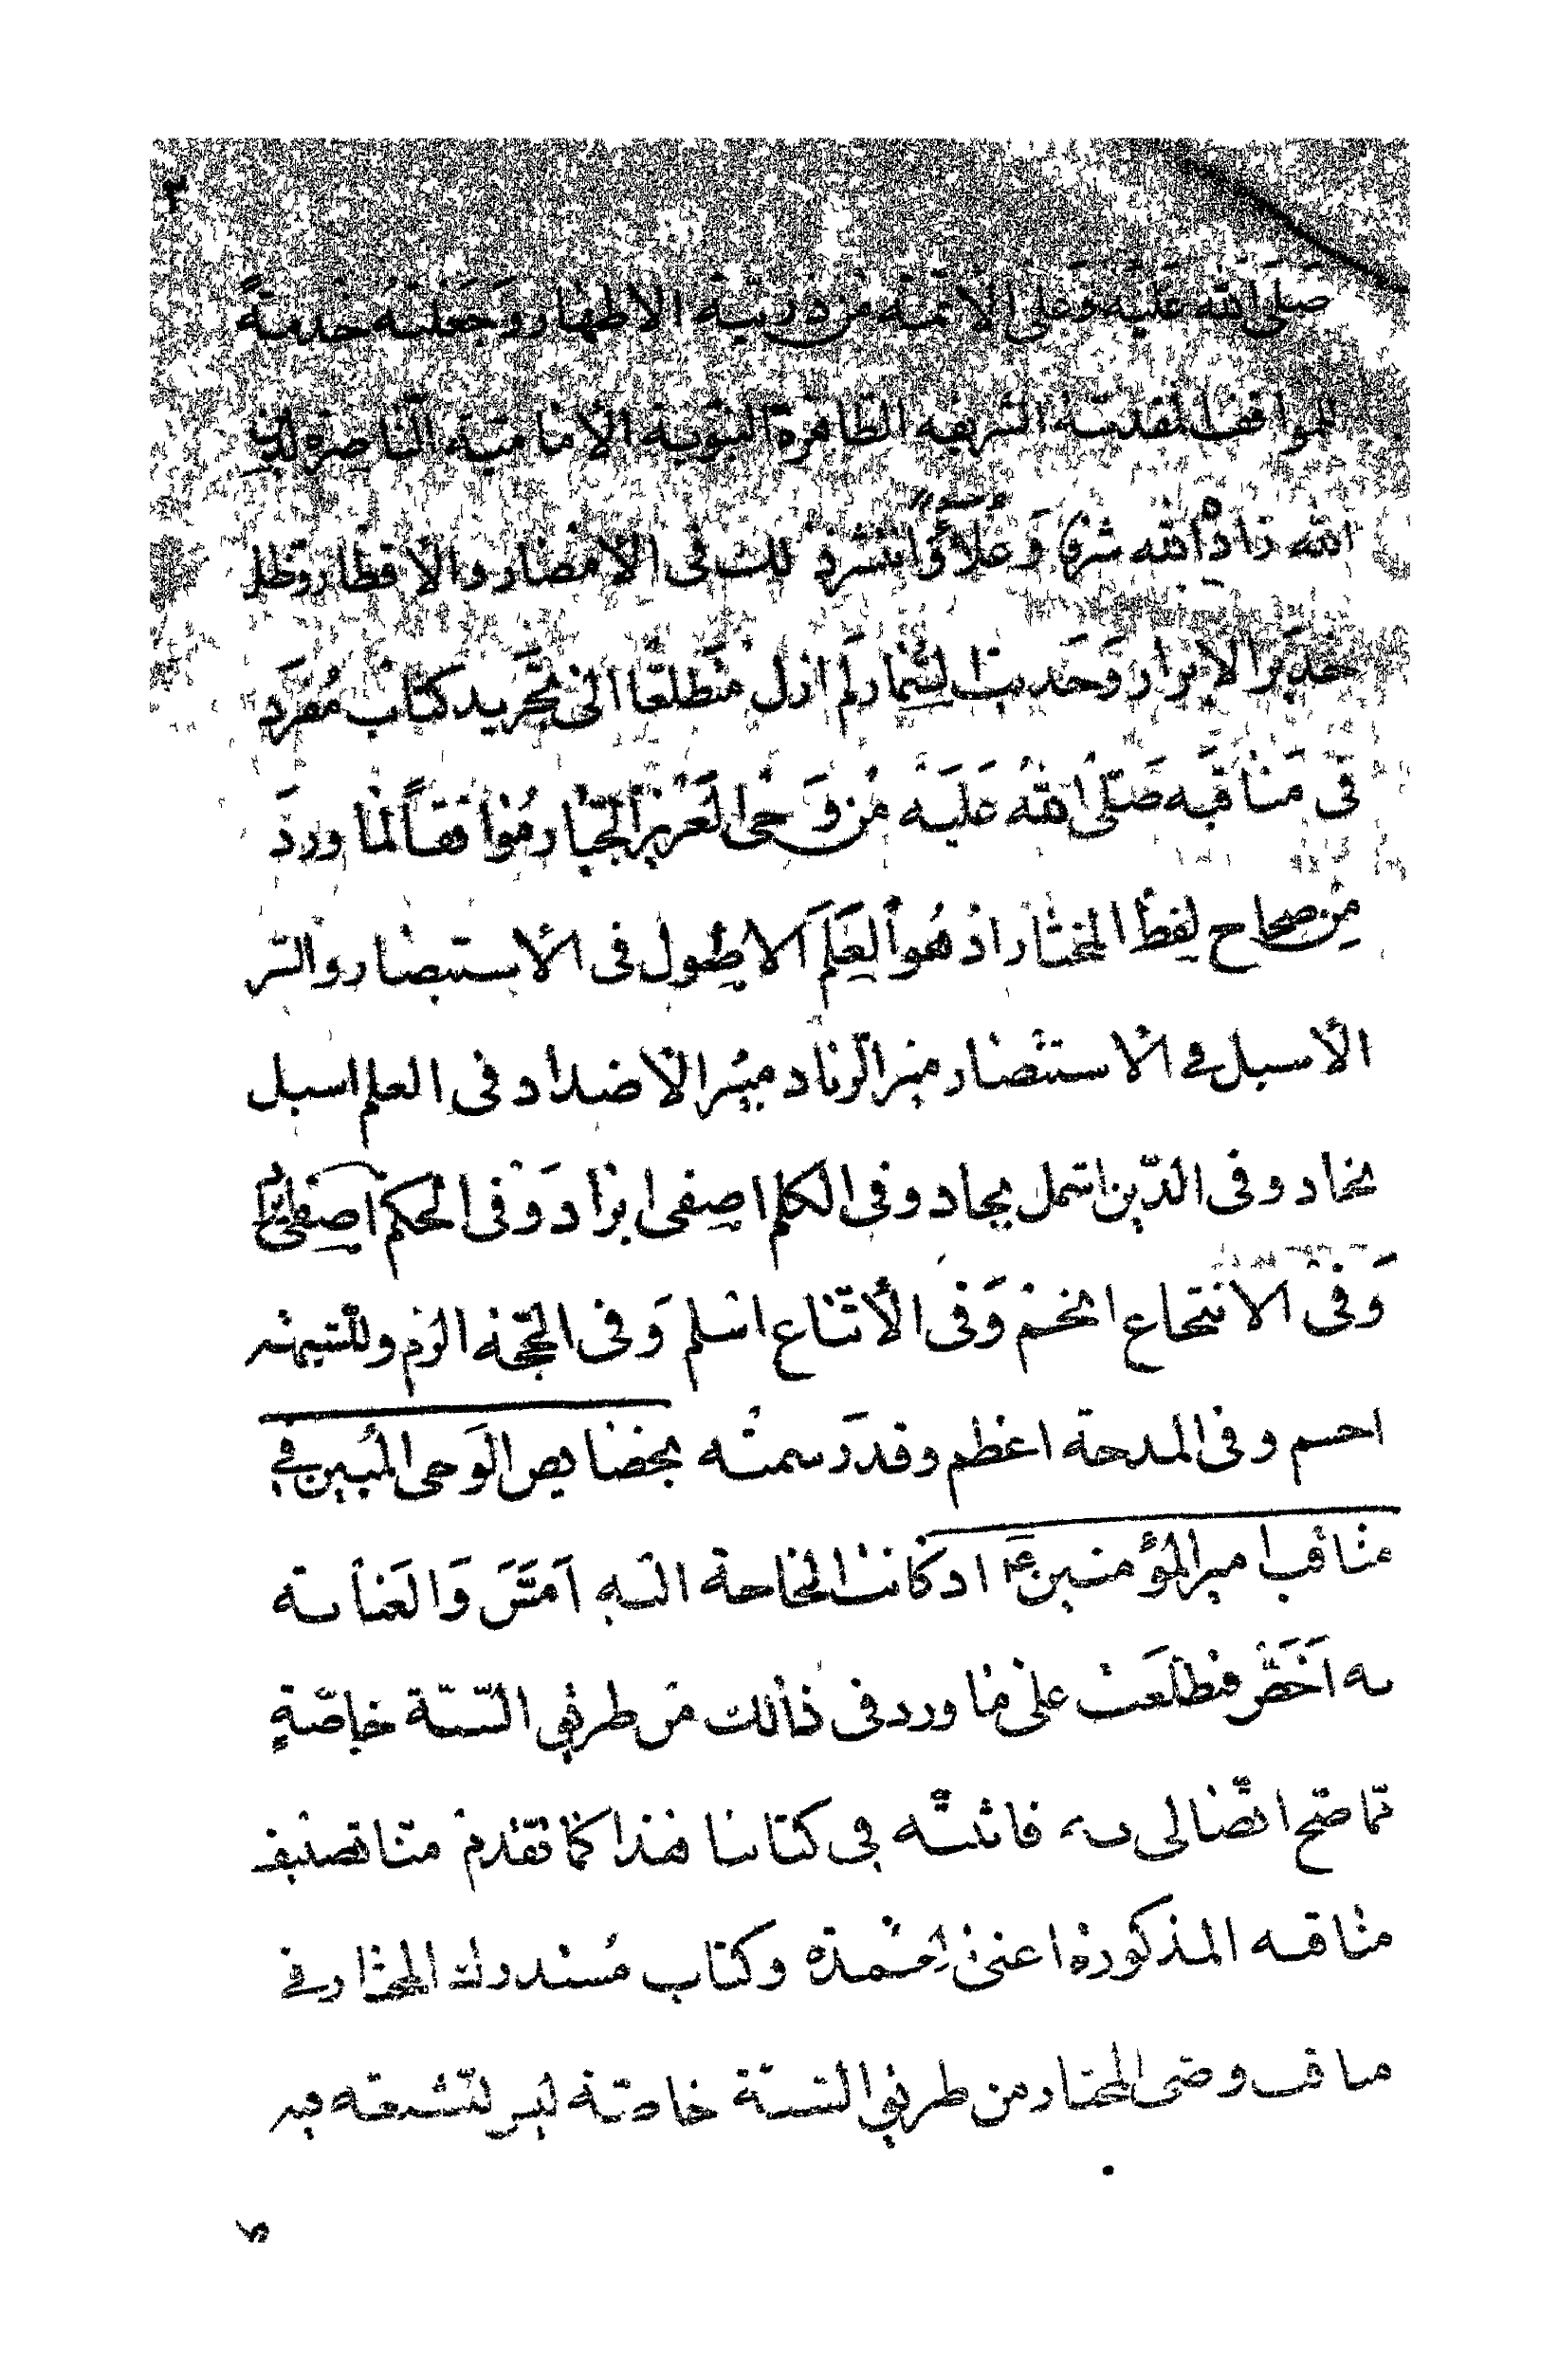 صلى الله عليه وعلى الائمة من ذريته الاطهار وجعلته خدمة
للمواقف المقدسة الشريفه الطاهرة النبوية الامامية الناصرة لدين
الله زاده الله شرفا وَعُلاَوًّا نتشر ذلك في الامصار والاقطار وظل
الابرار وحديث لم ازل متطلعا الى تجريد كتاب مُفرَد
في مناقبه صَلّى الله عَليَه من وَحى العَزيز الجبار مُوافقاً لما وردَ
مِن صحاح لفظ المختار اذ هُو العَلَم الاطول في الاستبصار والستر
الأسبل في الاستنصار الاضداد في العلم اسبل
نجاد وفى الدّين اشمل بجاد وفى الكلم اصفى ابراد وَفى الحكم اصفى
وَفى الانتجاع وَفى الأتباع اسلم وَفى الحجّة الزم وللشبهة
احسم وفى المدحة اعظم وقد رسمته بخصايص الوَحى المُبين في
مناقب امير المؤمنين ع اذ كانت الحاجة اليه اَمَسّ وَالعناية
به اَخَصّ فطلَعت على ما ورد فى ذالك من طريق السّنّة خاصّةٍ
ممّا صحّ اتصالى به فاثبتّه في كتابنا هذا كما تقدم منّا تصنيف
مناقبه المذكورة اعنى عُمدة وكتاب مُستدرك المختار في
مناقب وصى المختار من طريق السنّة خاصّة ليس للشيعة فيه